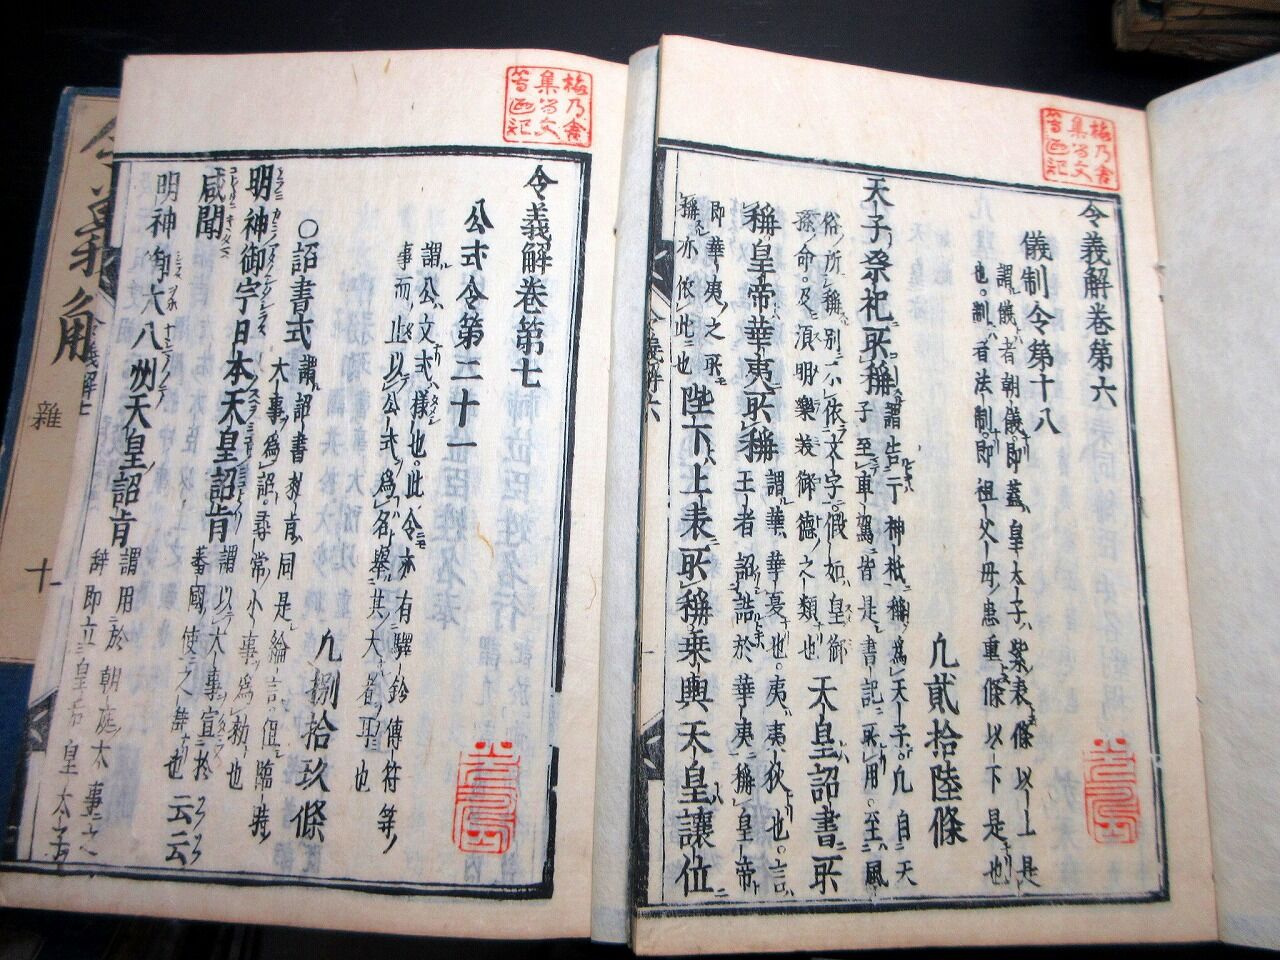 令義解卷第六
儀制令第十八
凡貳拾陸條
謂。儀者朝儀。即蓋皇太子。
也。制者法制。即祖父母患重條以下是也
天子祭祀所稱
謂告于神祇稱爲天子。凡自天
子至車駕皆是書記所用。至風
俗所稱別不依文字。假如皇御
孫命。及須明樂美御德之類也
太皇詔書所
稱皇帝華夷所稱
謂華華夏也。夷夷狄也。言
王者詔誥於華夷稱皇帝
即華夷之所
稱亦依此也
陛下上表所稱乗輿天皇讓位
令義解卷第七
公式令第二十一
凡捌拾玖條
謂公文式樣也。此令亦有驛鈴傳符等
事而止以公式爲名擧其大者耳也
〇詔書式
謂詔書勅旨同是綸言但臨時
大事爲詔。尋常小事爲勅也
明神御宇日本天皇詔旨
謂以大事宣於
蕃國使之辞也
云云
咸聞
明神御大八州天皇詔旨
謂用於朝庭大事之
辞即立皇后皇太子
令義解
雜
十